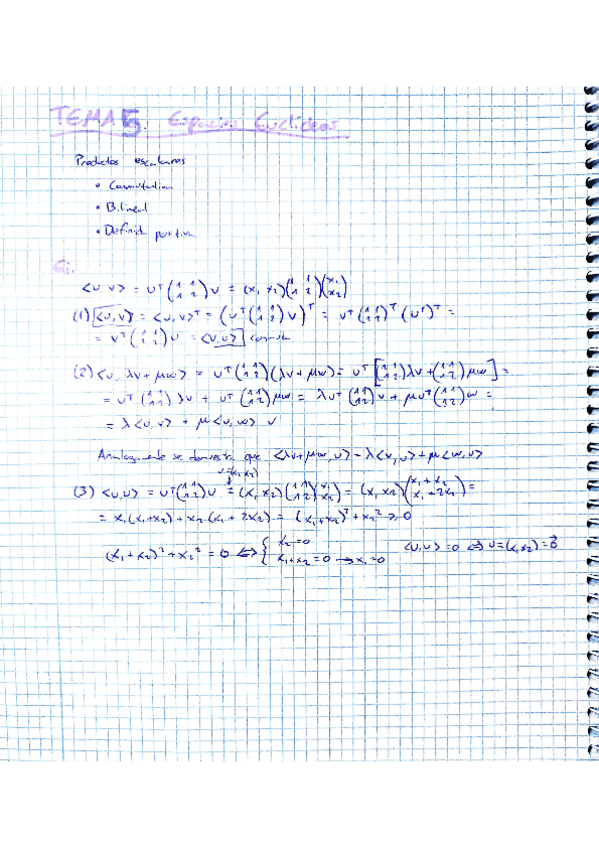 TEMA 5. Espacios Euclideos
Productos escalares
• Conmutativo
• Bilineal
• Definido positivo
Ej:
<u,v> = uᵀ(1 1; 1 2)v = (x₁ x₂)(1 1; 1 2)(x₁; x₂)
(1) <u,v> = <u,v>ᵀ = (uᵀ(1 1; 1 2)v)ᵀ = vᵀ(1 1; 1 2)ᵀ(uᵀ)ᵀ =
= vᵀ(1 1; 1 2)u = <v,u>
(2) <u, λv+μw> = uᵀ(1 1; 1 2)(λv+μw) = uᵀ[(1 1; 1 2)λv+(1 1; 1 2)μw] =
= uᵀ(1 1; 1 2)λv + uᵀ(1 1; 1 2)μw = λuᵀ(1 1; 1 2)v + μuᵀ(1 1; 1 2)w =
= λ<u,v> + μ<u,w> ✓
Analogamente se demuestra que <λv+μw,u> = λ<v,u>+μ<w,u>
u=(x₁,x₂)
(3) <u,u> = uᵀ(1 1; 1 2)u = (x₁ x₂)(1 1; 1 2)(x₁; x₂) = (x₁ x₂)(x₁+x₂; x₁+2x₂) =
= x₁(x₁+x₂)+x₂(x₁+2x₂) = (x₁+x₂)²+x₂² ≥ 0
(x₁+x₂)²+x₂² = 0 ⇔ { x₂=0; x₁+x₂=0 → x₁=0 <u,u>=0 ⇔ u=(x₁,x₂)=0⃗